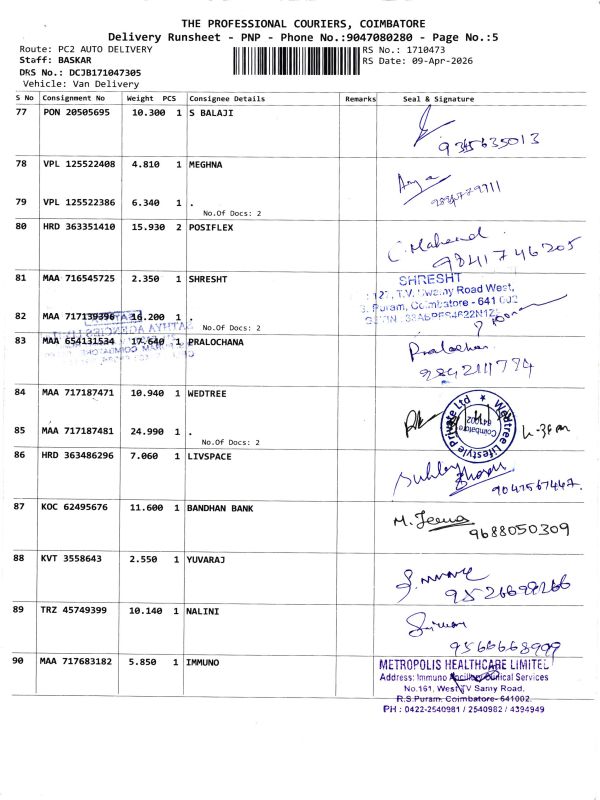 THE PROFESSIONAL COURIERS, COIMBATORE
Delivery Runsheet - PNP - Phone No.:9047080280 - Page No.:5
Route: PC2 AUTO DELIVERY
RS No.: 1710473
Staff: BASKAR
RS Date: 09-Apr-2026
DRS No.: DCJB171047305
Vehicle: Van Delivery
S No Consignment No Weight PCS Consignee Details Remarks Seal & Signature
77 PON 20505695 10.300 1 S BALAJI
9345635013
78 VPL 125522408 4.810 1 MEGHNA
79 VPL 125522386 6.340 1 .
No.Of Docs: 2
80 HRD 363351410 15.930 2 POSIFLEX
C. Mahend
9841746205
81 MAA 716545725 2.350 1 SHRESHT
SHRESHT
127, T.V. Swamy Road West,
Puram, Coimbatore - 641 002
82 MAA 717139396 16.200 1 .
No.Of Docs: 2
83 MAA 654131534 17.640 1 PRALOCHANA
Pralochan
9842111774
84 MAA 717187471 10.940 1 WEDTREE
Wedtree Lifestyle Private Ltd
Coimbatore
641002
85 MAA 717187481 24.990 1 .
No.Of Docs: 2
86 HRD 363486296 7.060 1 LIVSPACE
9047567447
87 KOC 62495676 11.600 1 BANDHAN BANK
M. Jeena
9688050309
88 KVT 3558643 2.550 1 YUVARAJ
89 TRZ 45749399 10.140 1 NALINI
9566668999
90 MAA 717683182 5.850 1 IMMUNO
METROPOLIS HEALTHCARE LIMITED
Address: Immuno Ancillary Clinical Services
No.161, West TV Samy Road,
R.S.Puram, Coimbatore- 641002
PH : 0422-2540981 / 2540982 / 4394949